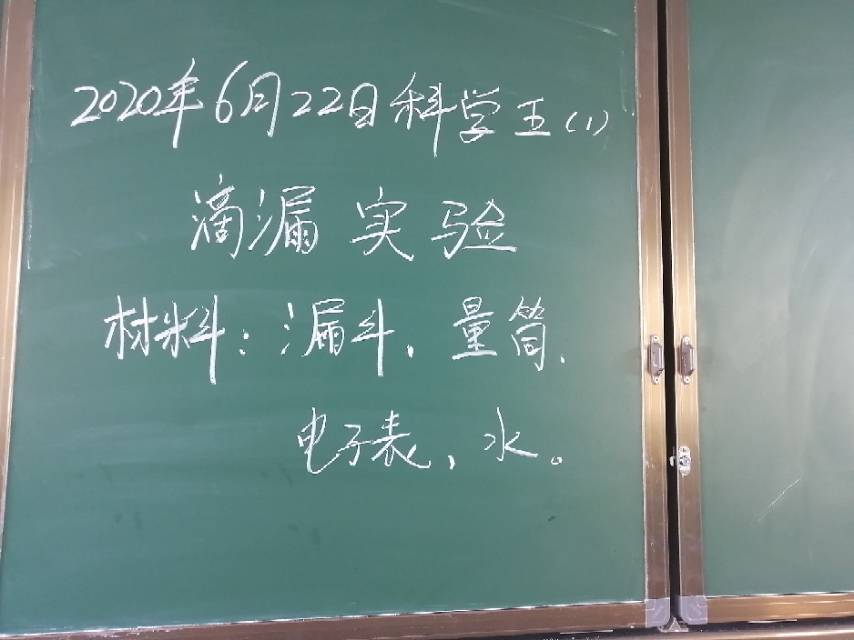 2020年6月22日科学五(1)
滴漏实验
材料:漏斗、量筒、
电子表、水。